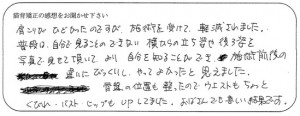 猫背矯正の感想をお聞かせ下さい
肩こりが ひどかったのですが、施術を受けて、軽減されました。
普段は、自分で見ることのできない横からの立ち姿や後ろ姿を
写真で見せて頂いて、より自分を知ることができ、施術前後の
違いにびっくりし、やってよかったと思えました。
骨盤の位置も整ったので、ウエストもちょっと
くびれ・バスト・ヒップも UPしました。おばさんでも嬉しい結果です。